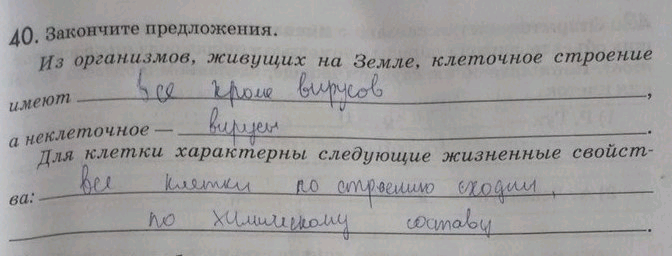 40. Закончите предложения.
Из организмов, живущих на Земле, клеточное строение
имеют все кроме вирусов,
а неклеточное — вирусы.
Для клетки характерны следующие жизненные свойст-
ва: все клетки по строению сходны,
по химическому составу.